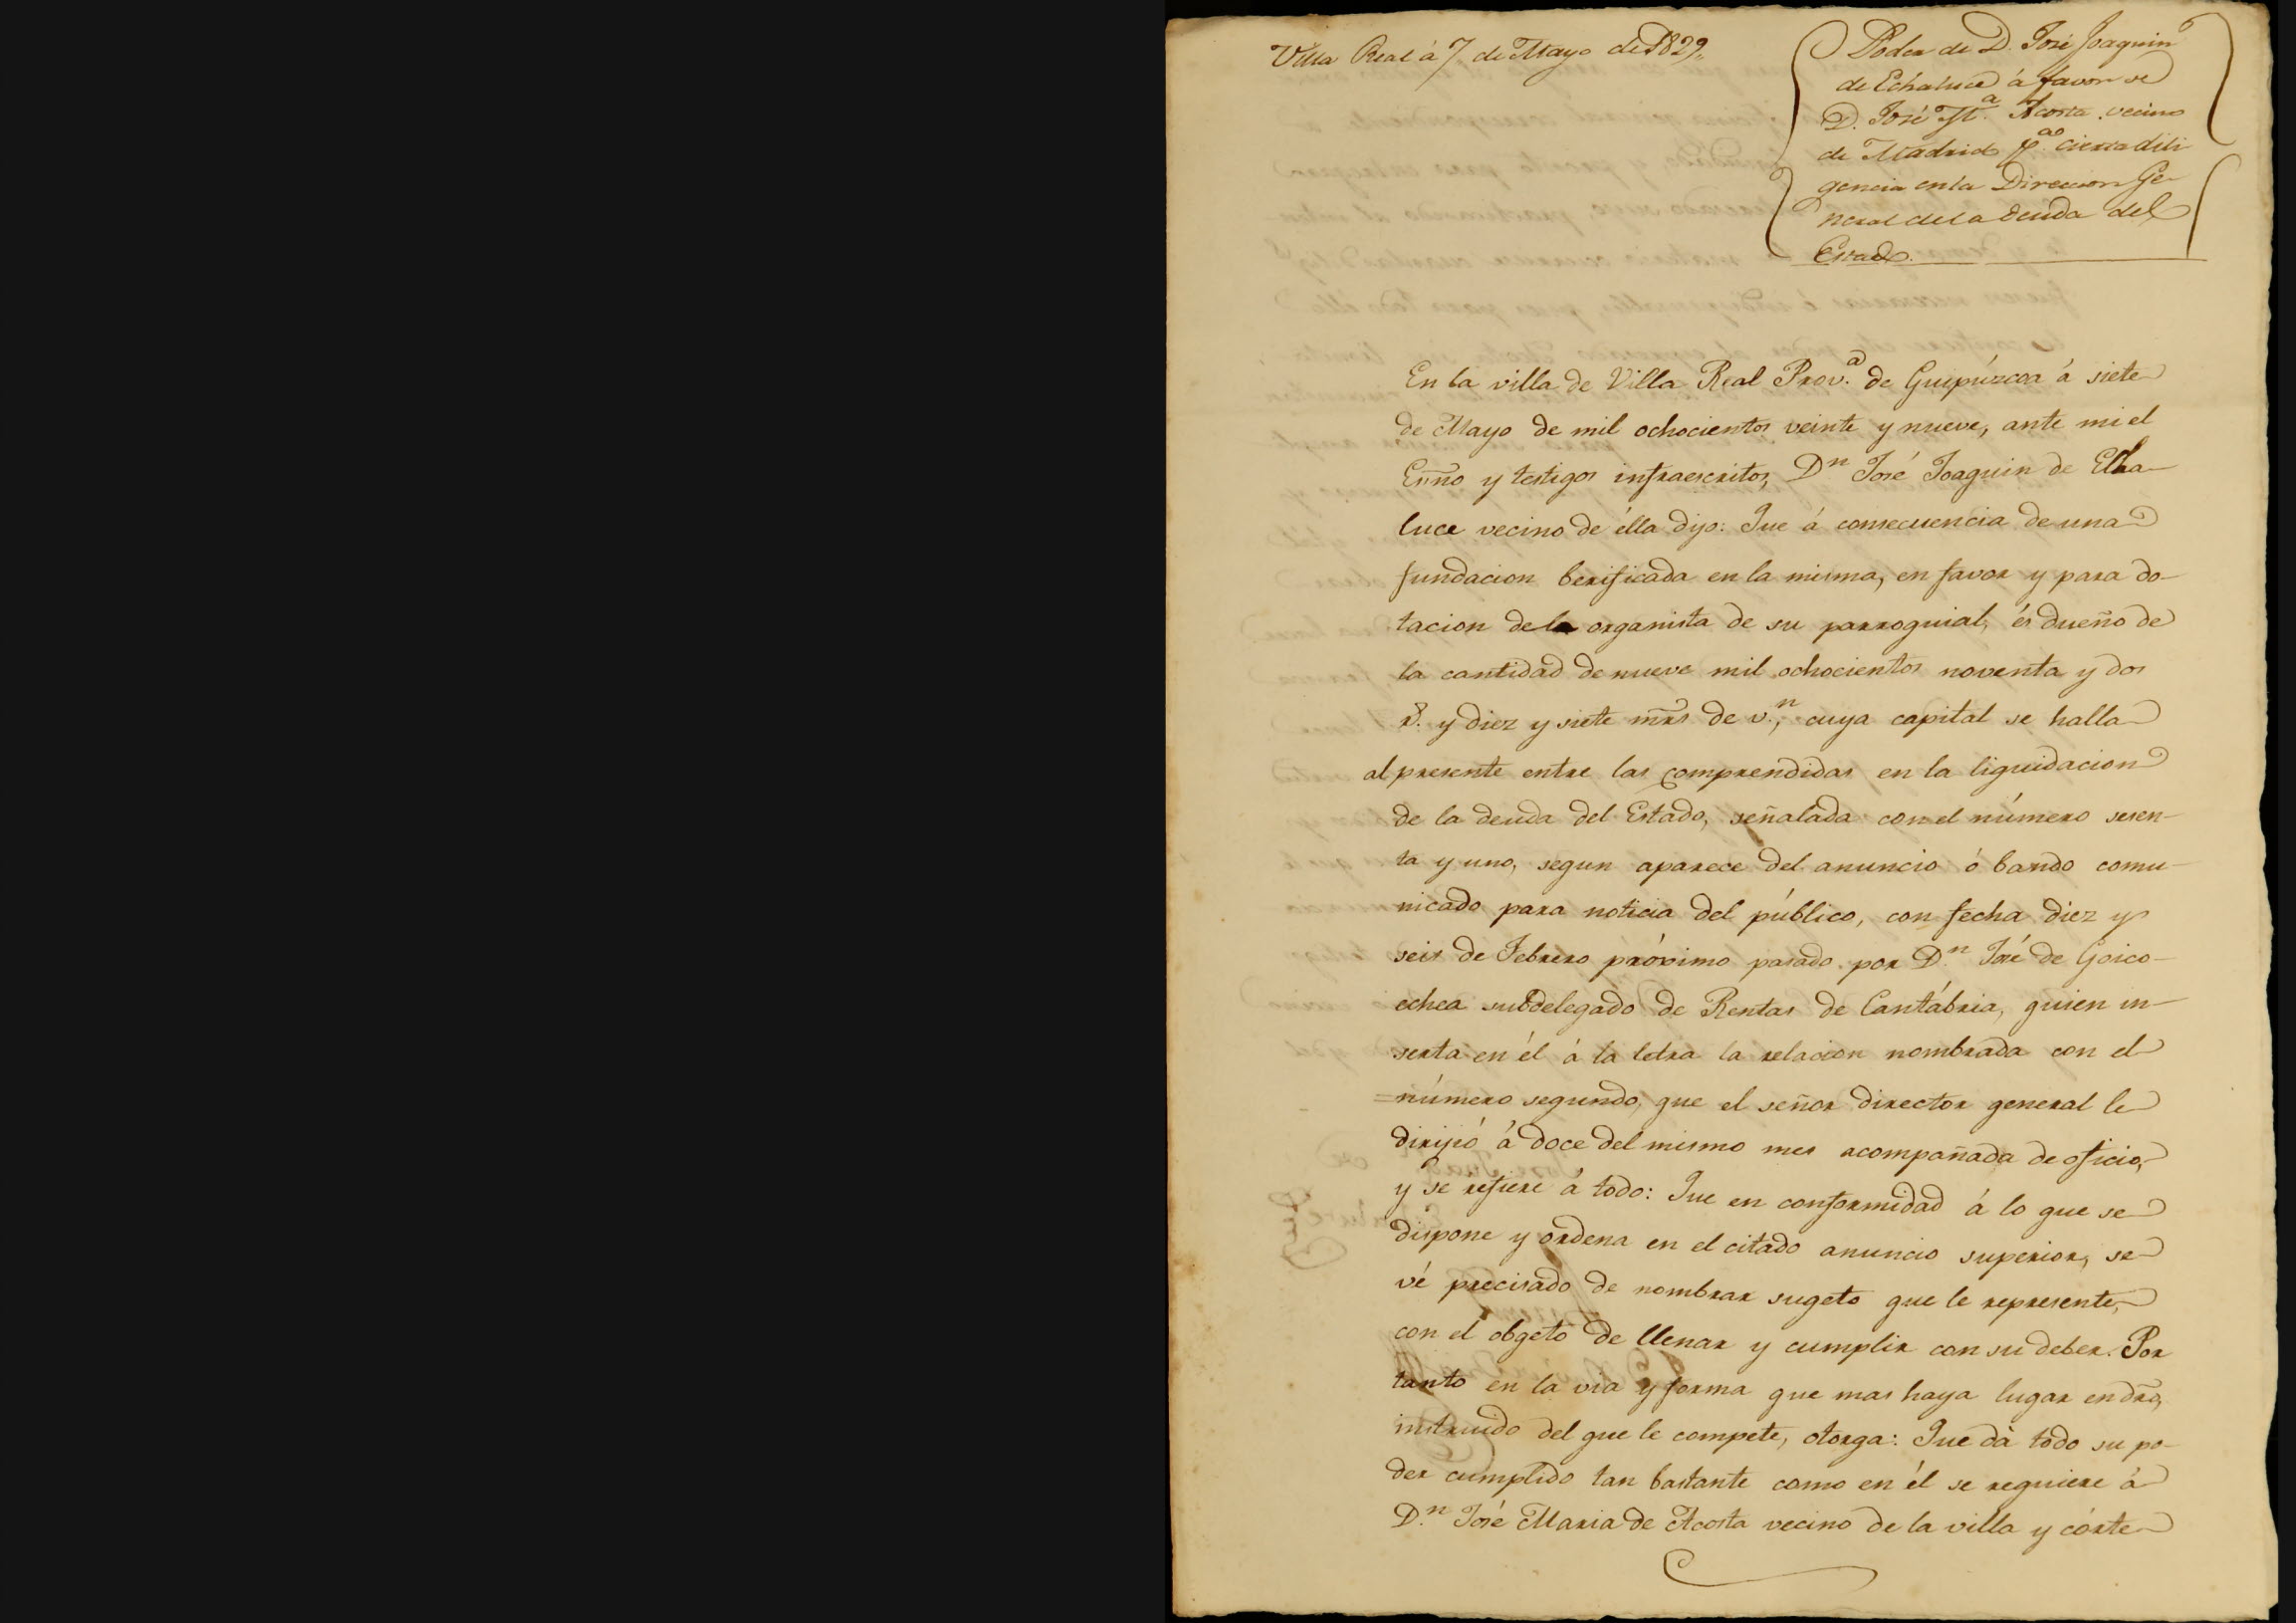 Villa Real à 7 de Mayo de 1829.
Poder de D. José Joaquin
de Echaluce à favor de
D. José M.ª Acosta vecino
de Madrid p.ª cierta dili
gencia en la Direccion Ge-
neral de la Deuda del
Estado.
En la villa de Villa Real Prov.ª de Guipúzcoa á siete
de Mayo de mil ochocientos veinte y nueve, ante mi el
Esño y testigos infraescritos, Dⁿ José Joaquin de Echa-
luce vecino de élla dijo: Que á consecuencia de una
fundacion berificada en la misma, en favor y para do-
tacion de la organista de su parroquial, és dueño de
la cantidad de nueve mil ochocientos noventa y dos
rˢ. y diez y siete mr̃s de v.ⁿ, cuya capital se halla
al presente entre las comprendidas en la liquidacion
de la deuda del Estado, señalada con el número sesen-
ta y uno, segun aparece del anuncio ó bando comu-
nicado para noticia del público, con fecha diez y
seis de Febrero próximo pasado por D.ⁿ José de Goico-
echea subdelegado de Rentas de Cantábria, quien in-
serta en él á la letra la relacion nombrada con el
=número segundo, que el señor director general le
dirijió á doce del mismo mes acompañada de oficio,
y se refiere á todo: Que en conformidad á lo que se
dispone y ordena en el citado anuncio superior, se
vé precisado de nombrar sugeto que le represente,
con el obgeto de llenar y cumplir con su deber. Por
tanto en la via y forma que mas haya lugar en dr̃o,
instruido del que le compete, otorga: Que dà todo su po-
der cumplido tan bastante como en él se requiere á
D.ⁿ José Maria de Acosta vecino de la villa y córte